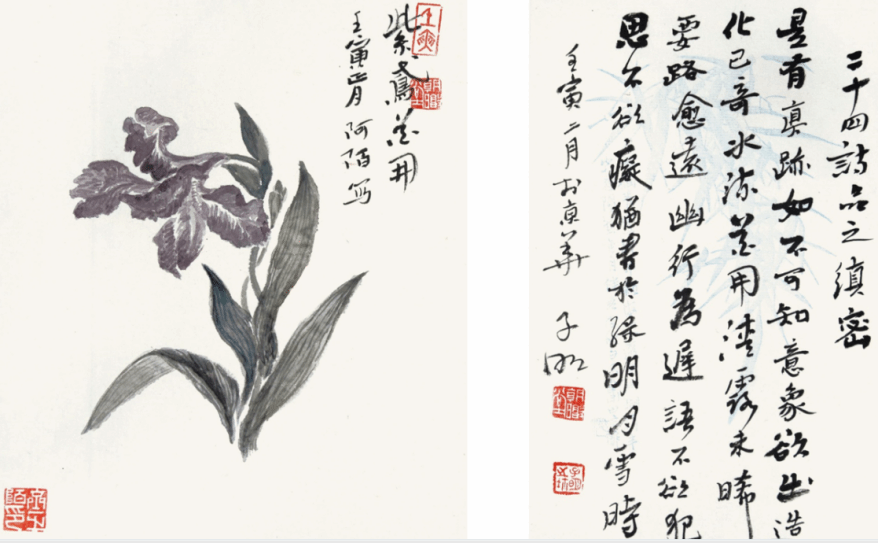 紫鳶花開
壬寅正月 阿陌 写
二十四詩品之縝密
是有真跡如不可知意象欲出造
化已奇水流花開清露未晞
要路愈遠幽行為遲語不欲犯
思不欲癡猶春於綠明月雪時
壬寅二月於京華 子